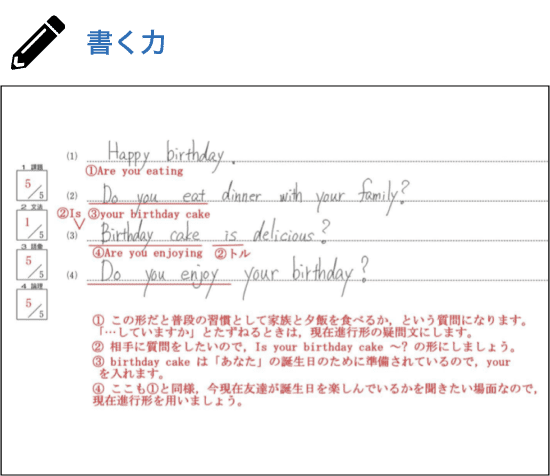 書く力
(1) Happy birthday.
①Are you eating
1 課題
5/5
(2) Do you eat dinner with your family?
2 文法
1/5
②Is ③your birthday cake
(3) Birthday cake is delicious?
3 語彙
5/5
④Are you enjoying ②トル
(4) Do you enjoy your birthday?
4 論理
5/5
① この形だと普段の習慣として家族と夕飯を食べるか，という質問になります。
「…していますか」とたずねるときは，現在進行形の疑問文にします。
② 相手に質問をしたいので，Is your birthday cake ～? の形にしましょう。
③ birthday cake は「あなた」の誕生日のために準備されているので，your
を入れます。
④ ここも①と同様，今現在友達が誕生日を楽しんでいるかを聞きたい場面なので，
現在進行形を用いましょう。